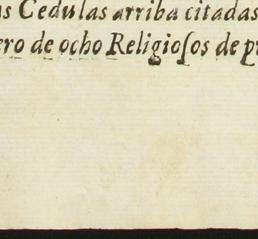 s Cedulas arriba citadas
ero de ocho Religioſos de p